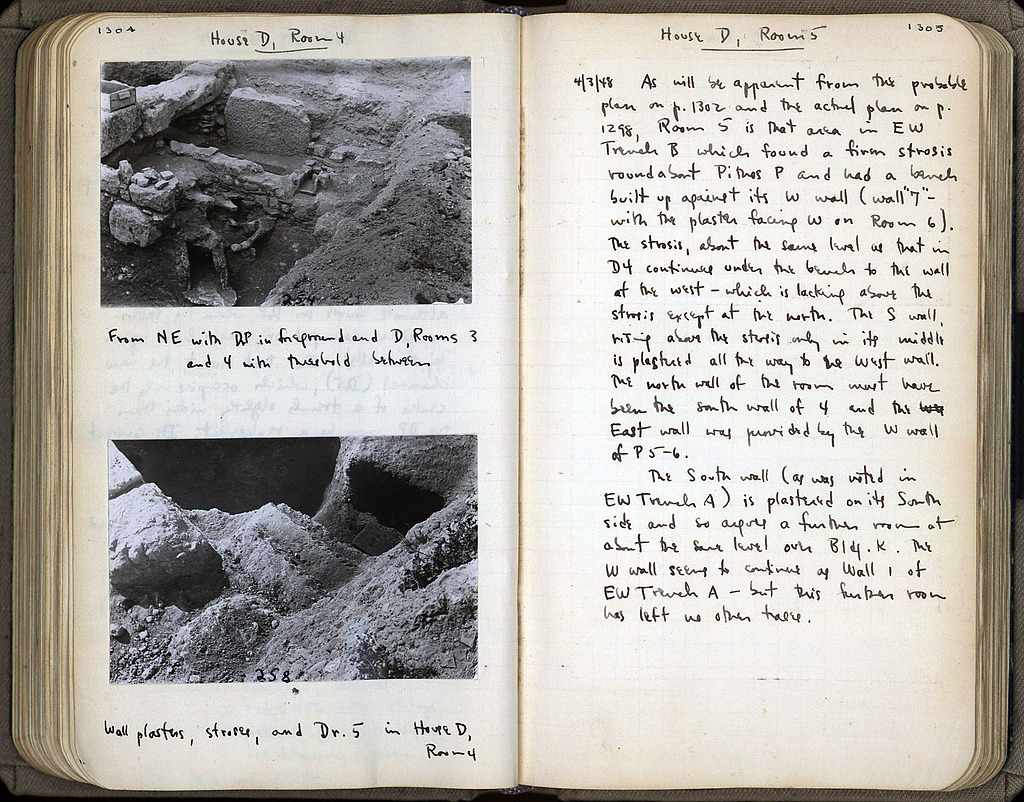 1304
House D, Room 4
254
From NE with DP in foreground and D, Rooms 3
and 4 with threshold between
258
Wall plasters, stroses, and Dr. 5 in House D,
Room 4
1305
House D, Room 5
4/3/48 As will be apparent from the probable
plan on p. 1302 and the actual plan on p.
1298, Room 5 is that area in EW
Trench B which found a firm strosis
roundabout Pithos P and had a bench
built up against its W wall (wall "7" -
with the plaster facing W on Room 6).
The strosis, about the same level as that in
D4 continues under the bench to the wall
at the west - which is lacking above the
strosis except at the north. The S wall,
rising above the strosis only in its middle
is plastered all the way to the West wall.
The north wall of the room must have
been the south wall of 4 and the
East wall was provided by the W wall
of P 5-6.
The South wall (as was noted in
EW Trench A) is plastered on its South
side and so argues a further room at
about the same level over Bldg. K. The
W wall seems to continue as Wall 1 of
EW Trench A - but this further room
has left no other trace.